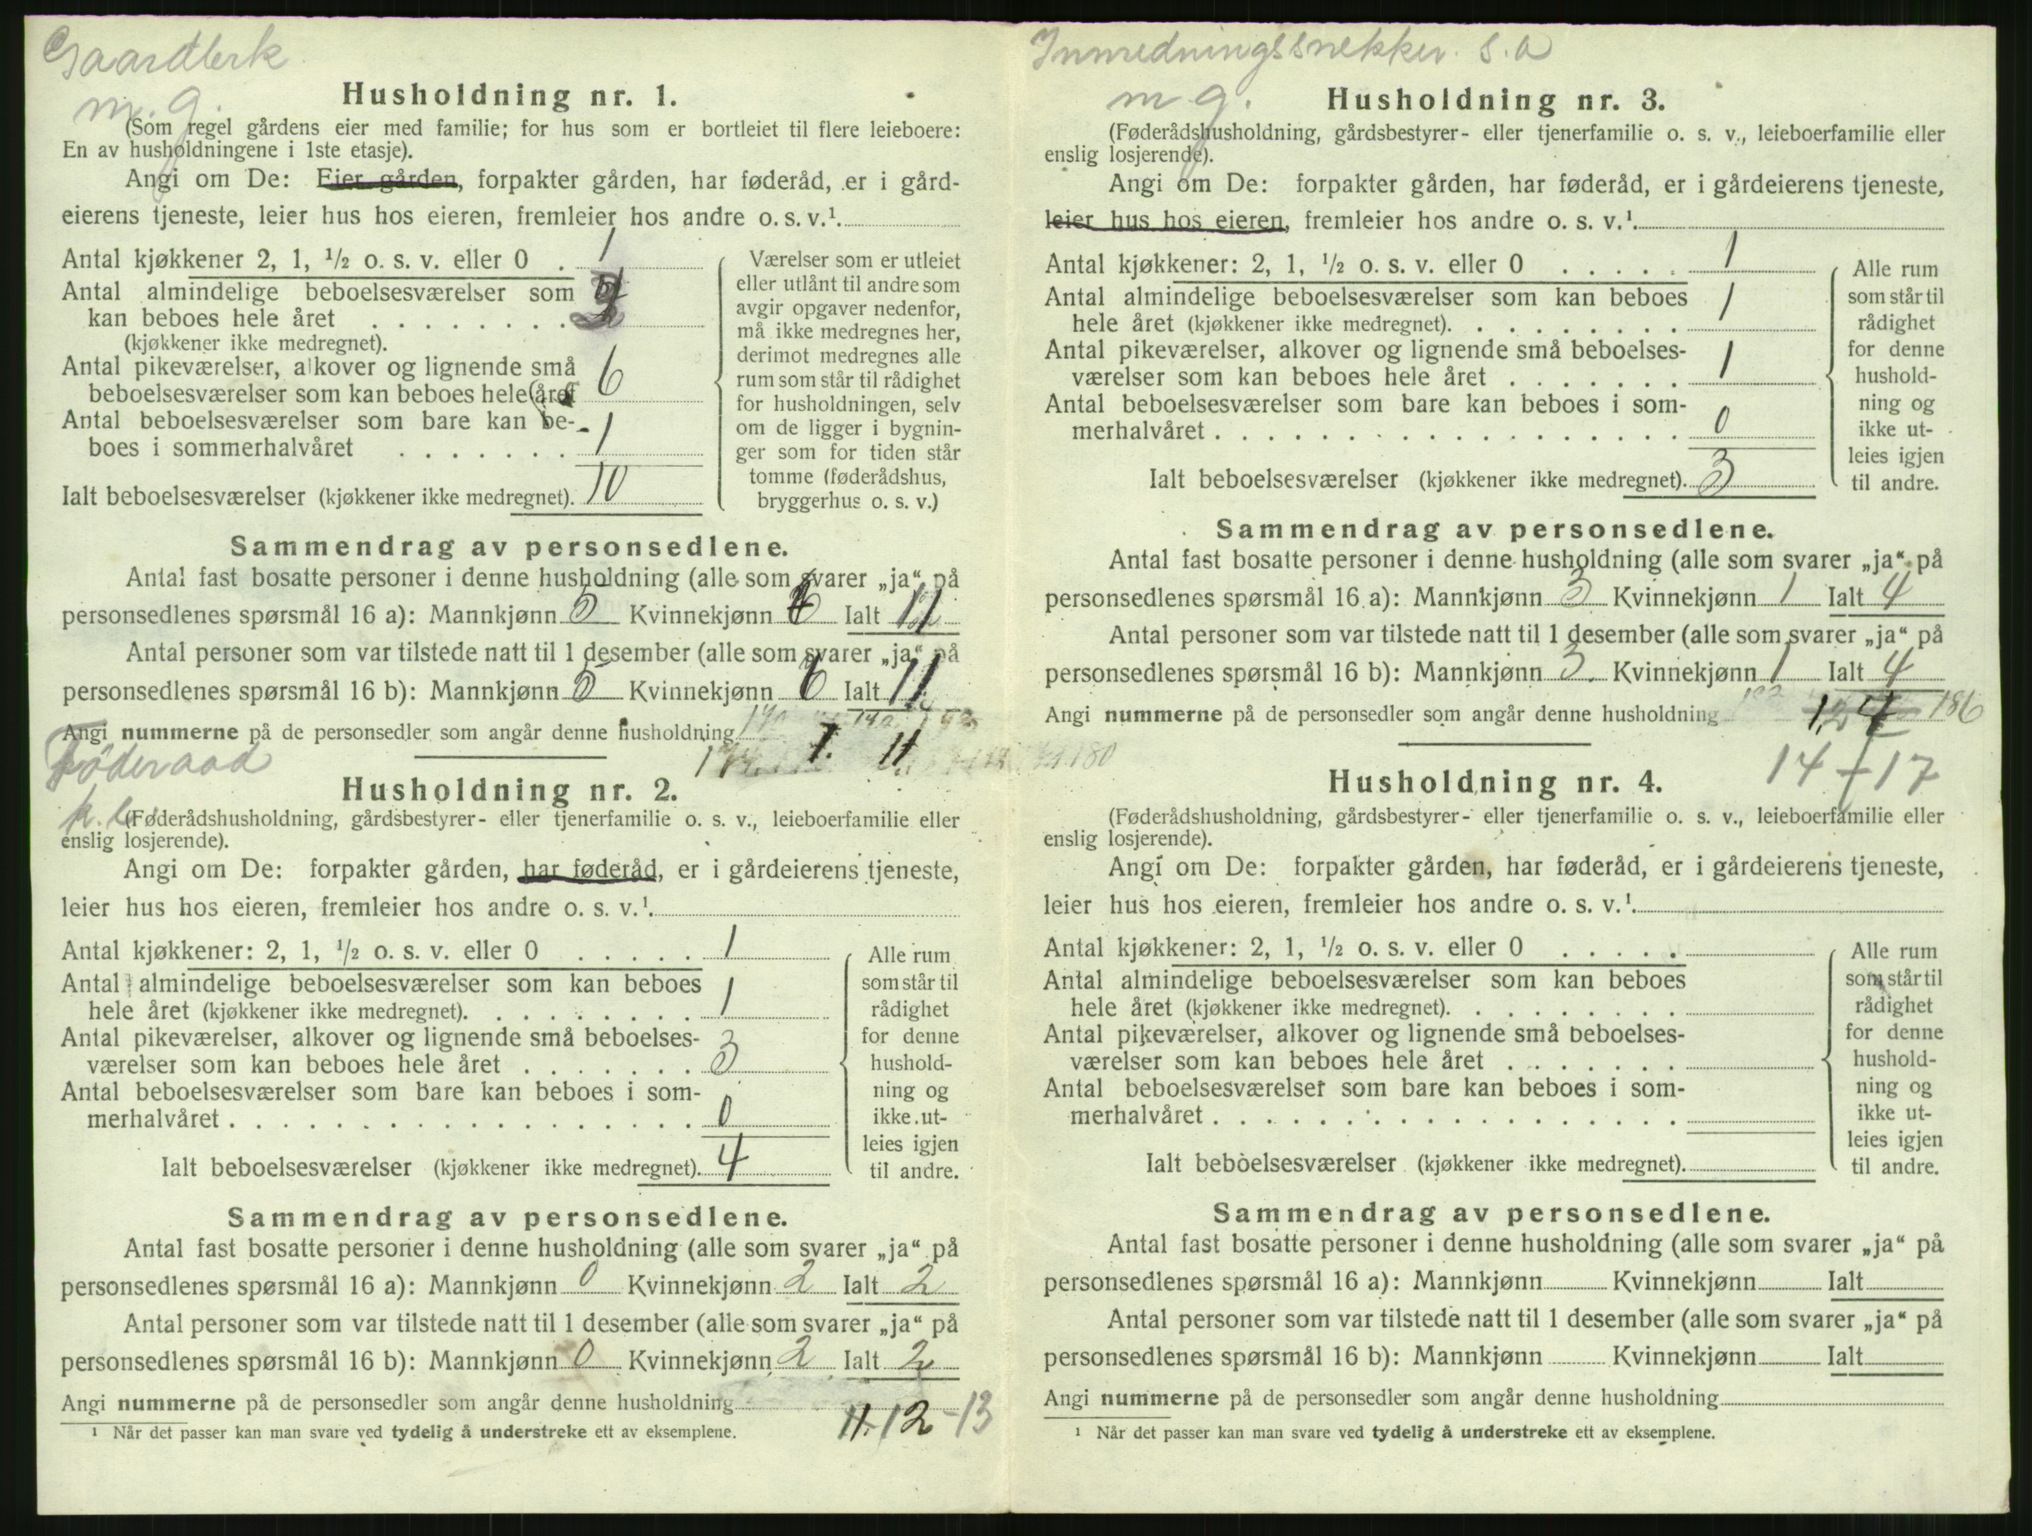 Gaardbrk
m. g.
Husholdning nr. 1.
(Som regel gårdens eier med familie; for hus som er bortleiet til flere leieboere:
En av husholdningene i 1ste etasje).
Angi om De: Eier gården, forpakter gården, har føderåd, er i gård-
eierens tjeneste, leier hus hos eieren, fremleier hos andre o. s. v.¹.
Antal kjøkkener 2, 1, ½ o. s. v. eller 0 . 1
Antal almindelige beboelsesværelser som
kan beboes hele året . . . . . . . .
(kjøkkener ikke medregnet).
Antal pikeværelser, alkover og lignende små
beboelsesværelser som kan beboes hele året 6
Antal beboelsesværelser som bare kan be-
boes i sommerhalvåret . . . . . . . 1
Ialt beboelsesværelser (kjøkkener ikke medregnet). 10
Værelser som er utleiet
eller utlånt til andre som
avgir opgaver nedenfor,
må ikke medregnes her,
derimot medregnes alle
rum som står til rådighet
for husholdningen, selv
om de ligger i bygnin-
ger som for tiden står
tomme (føderådshus,
bryggerhus o. s. v.)
Sammendrag av personsedlene.
Antal fast bosatte personer i denne husholdning (alle som svarer „ja“ på
personsedlenes spørsmål 16 a): Mannkjønn 5 Kvinnekjønn 6 Ialt 11
Antal personer som var tilstede natt til 1 desember (alle som svarer „ja“ på
personsedlenes spørsmål 16 b): Mannkjønn 5 Kvinnekjønn 6 Ialt 11
Angi nummerne på de personsedler som angår denne husholdning
1. 11
Føderaad
k. l.
Husholdning nr. 2.
(Føderådshusholdning, gårdsbestyrer- eller tjenerfamilie o. s. v., leieboerfamilie eller
enslig losjerende).
Angi om De: forpakter gården, har føderåd, er i gårdeierens tjeneste,
leier hus hos eieren, fremleier hos andre o. s. v.¹.
Antal kjøkkener: 2, 1, ½ o. s. v. eller 0 . . . . . 1
Antal almindelige beboelsesværelser som kan beboes
hele året (kjøkkener ikke medregnet). . . . . . . . . 1
Antal pikeværelser, alkover og lignende små beboelses-
værelser som kan beboes hele året . . . . . . . 3
Antal beboelsesværelser som bare kan beboes i som-
merhalvåret . . . . . . . . . . . . . . . . . . 0
Ialt beboelsesværelser (kjøkkener ikke medregnet). 4
Alle rum
som står til
rådighet
for denne
hushold-
ning og
ikke ut-
leies igjen
til andre.
Sammendrag av personsedlene.
Antal fast bosatte personer i denne husholdning (alle som svarer „ja“ på
personsedlenes spørsmål 16 a): Mannkjønn 0 Kvinnekjønn 2 Ialt 2
Antal personer som var tilstede natt til 1 desember (alle som svarer „ja“ på
personsedlenes spørsmål 16 b): Mannkjønn 0 Kvinnekjønn 2 Ialt 2
Angi nummerne på de personsedler som angår denne husholdning
12-13
¹ Når det passer kan man svare ved tydelig å understreke ett av eksemplene.
Innredningssnekker. s. a
m g.
Husholdning nr. 3.
(Føderådshusholdning, gårdsbestyrer- eller tjenerfamilie o. s. v., leieboerfamilie eller
enslig losjerende).
Angi om De: forpakter gården, har føderåd, er i gårdeierens tjeneste,
leier hus hos eieren, fremleier hos andre o. s. v.¹.
Antal kjøkkener: 2, 1, ½ o. s. v. eller 0 . . . . . 1
Antal almindelige beboelsesværelser som kan beboes
hele året (kjøkkener ikke medregnet). . . . . . . . . 1
Antal pikeværelser, alkover og lignende små beboelses-
værelser som kan beboes hele året . . . . . . . 1
Antal beboelsesværelser som bare kan beboes i som-
merhalvåret . . . . . . . . . . . . . . . . . . 0
Ialt beboelsesværelser (kjøkkener ikke medregnet). 3
Alle rum
som står til
rådighet
for denne
hushold-
ning og
ikke ut-
leies igjen
til andre.
Sammendrag av personsedlene.
Antal fast bosatte personer i denne husholdning (alle som svarer „ja“ på
personsedlenes spørsmål 16 a): Mannkjønn 3 Kvinnekjønn 1 Ialt 4
Antal personer som var tilstede natt til 1 desember (alle som svarer „ja“ på
personsedlenes spørsmål 16 b): Mannkjønn 3. Kvinnekjønn 1 Ialt 4
Angi nummerne på de personsedler som angår denne husholdning 186
14-17
Husholdning nr. 4.
(Føderådshusholdning, gårdsbestyrer- eller tjenerfamilie o. s. v., leieboerfamilie eller
enslig losjerende).
Angi om De: forpakter gården, har føderåd, er i gårdeierens tjeneste,
leier hus hos eieren, fremleier hos andre o. s. v.¹.
Antal kjøkkener: 2, 1, ½ o. s. v. eller 0 . . . . .
Antal almindelige beboelsesværelser som kan beboes
hele året (kjøkkener ikke medregnet). . . . . . . . .
Antal pikeværelser, alkover og lignende små beboelses-
værelser som kan beboes hele året . . . . . . .
Antal beboelsesværelser som bare kan beboes i som-
merhalvåret . . . . . . . . . . . . . . . . . .
Ialt beboelsesværelser (kjøkkener ikke medregnet).
Alle rum
som står til
rådighet
for denne
hushold-
ning og
ikke ut-
leies igjen
til andre.
Sammendrag av personsedlene.
Antal fast bosatte personer i denne husholdning (alle som svarer „ja“ på
personsedlenes spørsmål 16 a): Mannkjønn Kvinnekjønn Ialt
Antal personer som var tilstede natt til 1 desember (alle som svarer „ja“ på
personsedlenes spørsmål 16 b): Mannkjønn Kvinnekjønn Ialt
Angi nummerne på de personsedler som angår denne husholdning
¹ Når det passer kan man svare ved tydelig å understreke ett av eksemplene.